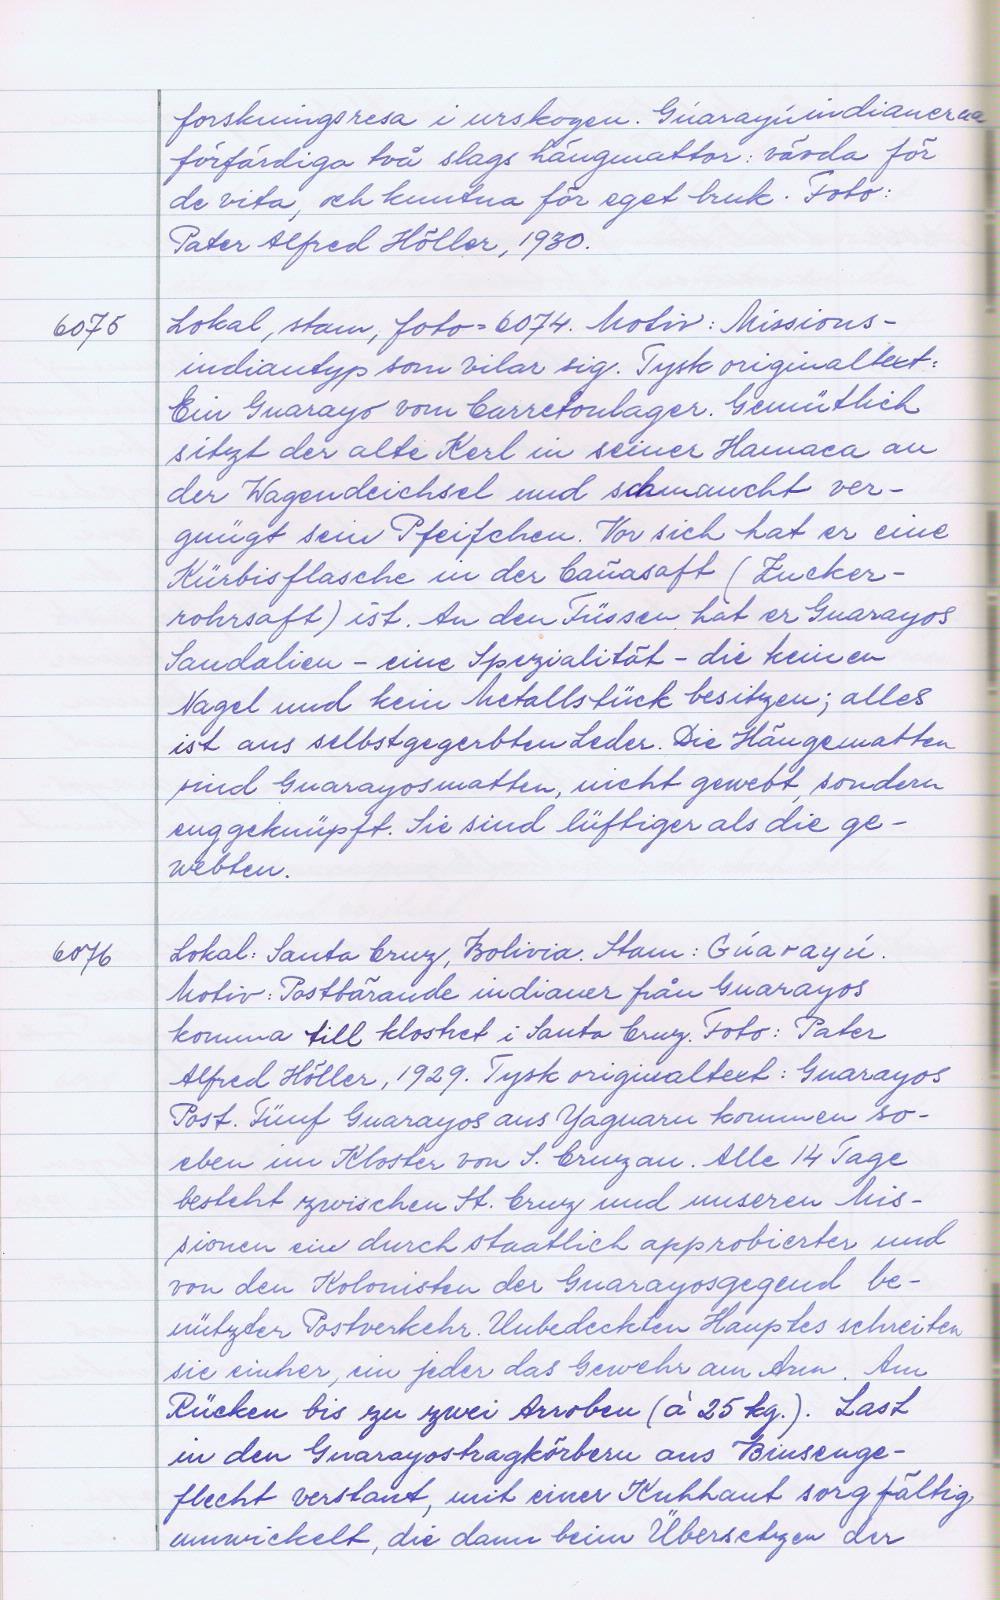 forskningsresa i urskogen. Gúarayúindianerna
förfärdiga två slags hängmattor: vävda för
de vita, och knutna för eget bruk. Foto:
Pater Alfred Höller, 1930.
6075 Lokal, stam, foto = 6074. Motiv: Missions-
indiantyp som vilar sig. Tysk originaltext:
Ein Guarayo vom Carretonlager. Gemütlich
sitzt der alte Kerl in seiner Hamaca an
der Wagendeichsel und schmaucht ver-
gnügt sein Pfeifchen. Vor sich hat er eine
Kürbisflasche in der Cañasaft (Zucker-
rohrsaft) ist. An den Füssen hat er Guarayos
Sandalien - eine Spezialität - die keinen
Nagel und kein Metallstück besitzen; alles
ist aus selbstgegerbten Leder. Die Hängematten
sind Guarayosmatten, nicht gewebt, sondern
enggeknüpft. Sie sind lüftiger als die ge-
webten.
6076 Lokal: Santa Cruz, Bolivia. Stam: Gúarayú.
Motiv: Postbärande indianer från Guarayos
komma till klostret i Santa Cruz. Foto: Pater
Alfred Höller, 1929. Tysk originaltext: Guarayos
Post. Fünf Guarayos aus Yaguaru kommen so-
eben im Kloster von S. Cruz an. Alle 14 Tage
besteht zwischen St. Cruz und unseren Mis-
sionen ein durch staatlich approbierter und
von den Kolonisten der Guarayosgegend be-
nützter Postverkehr. Unbedeckten Hauptes schreiten
sie einher, ein jeder das Gewehr am Arm. Am
Rücken bis zu zwei Arroben (à 25 kg.). Last
in den Guarayostragkörbern aus Binsenge-
flecht verstaut, mit einer Kuhhaut sorgfältig
umwickelt, die dann beim Übersetzen der